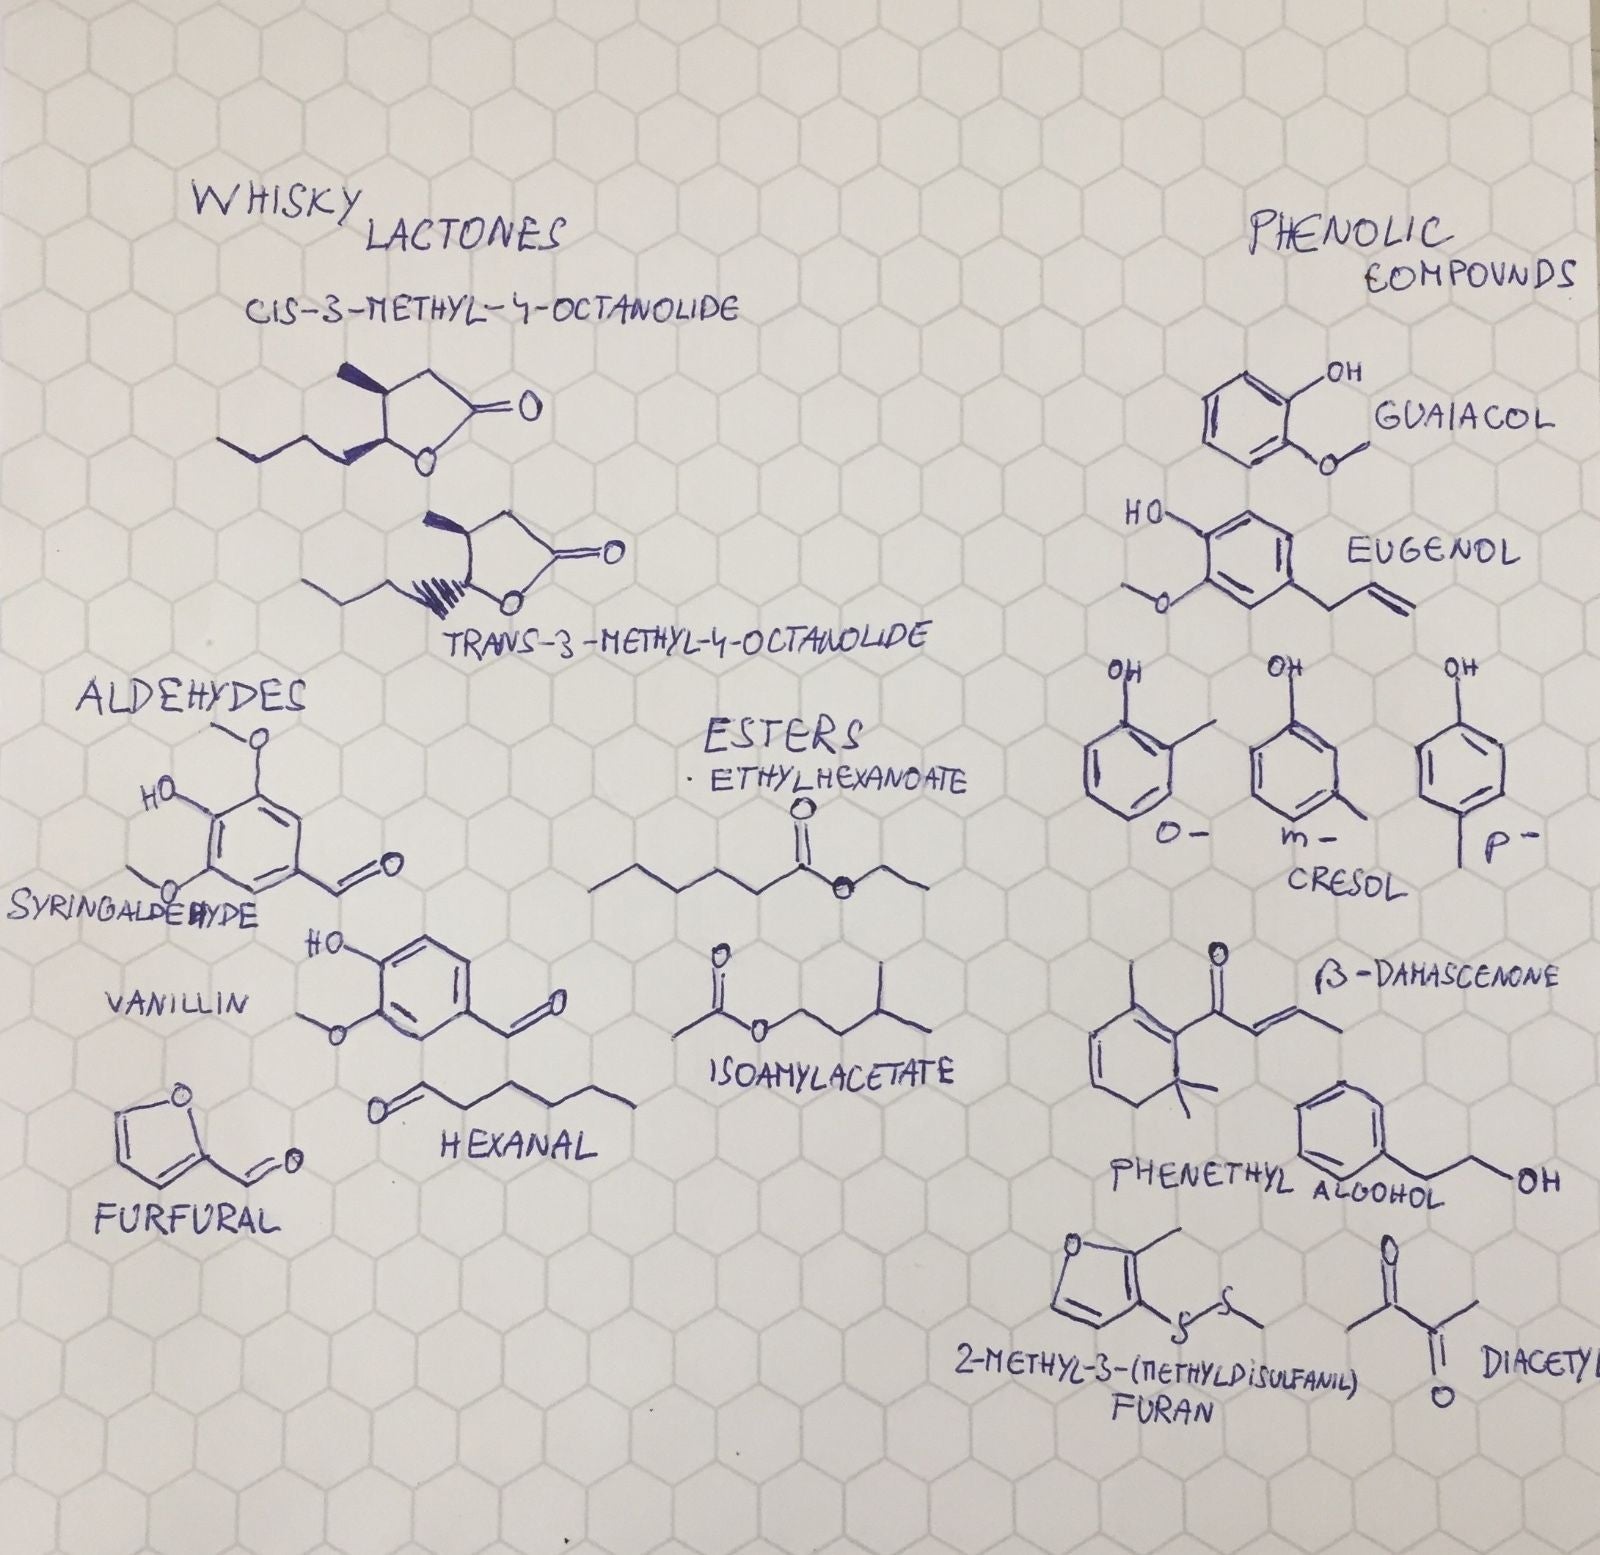 WHISKY
LACTONES
CIS-3-METHYL-4-OCTANOLIDE
O
O
O
O
TRANS-3-METHYL-4-OCTANOLIDE
ALDEHYDES
O
HO
O
O
SYRINGALDEHYDE
HO
VANILLIN
O
O
O
O
FURFURAL
O
HEXANAL
ESTERS
· ETHYLHEXANOATE
O
O
O
O
ISOAMYLACETATE
PHENOLIC
COMPOUNDS
OH
GUAIACOL
O
HO
EUGENOL
O
OH OH OH
O- m- p-
CRESOL
O
β-DAMASCENONE
PHENETHYL ALCOHOL
OH
O
S
S
2-METHYL-3-(METHYLDiSULFANIL)
FURAN
O
O
DIACETYL